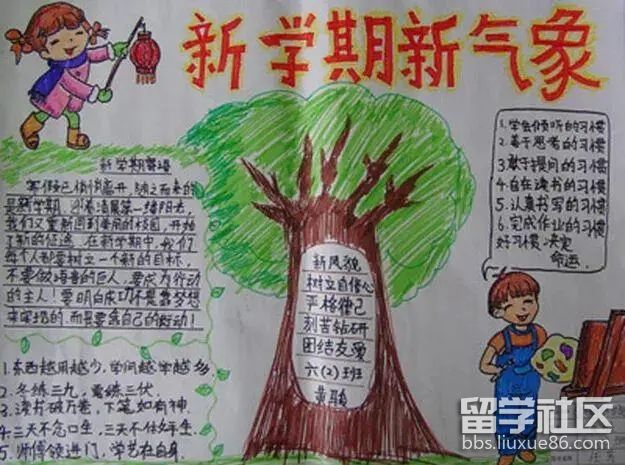 新学期新气象
新学期寄语
寒假已悄悄离开,随之而来的
是新学期。迎着清晨第一缕阳光,
我们又重新回到美丽的校园,开始
了新的征途。在新学期中,我们
每个人都要树立一个新的目标,
不要做语言的巨人,要成为行动
的主人!要明白成功不是靠梦想
来实现的,而是要靠自己的行动!
1.东西越用越少,学问越学越多。
2.冬练三九,夏练三伏。
3.读书破万卷,下笔如有神。
4.三天不念口生,三天不做手生。
5.师傅领进门,学艺在自身。
新风貌
树立自信心
严格律己
刻苦钻研
团结友爱
六(2)班
黄
1.学会倾听的习惯
2.善于思考的习惯
3.敢于提问的习惯
4.自在读书的习惯
5.认真书写的习惯
6.完成作业的习惯
好习惯,决定
命运。
留学社区
bbs.liuxue86.com